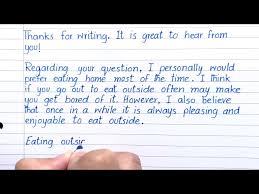 Thanks for writing. It is great to hear from
you!
Regarding your question, I personally would
prefer eating home most of the time. I think
if you go out to eat outside often may make
you get bored of it. However, I also believe
that once in a while it is always pleasing and
enjoyable to eat outside.
Eating outsir